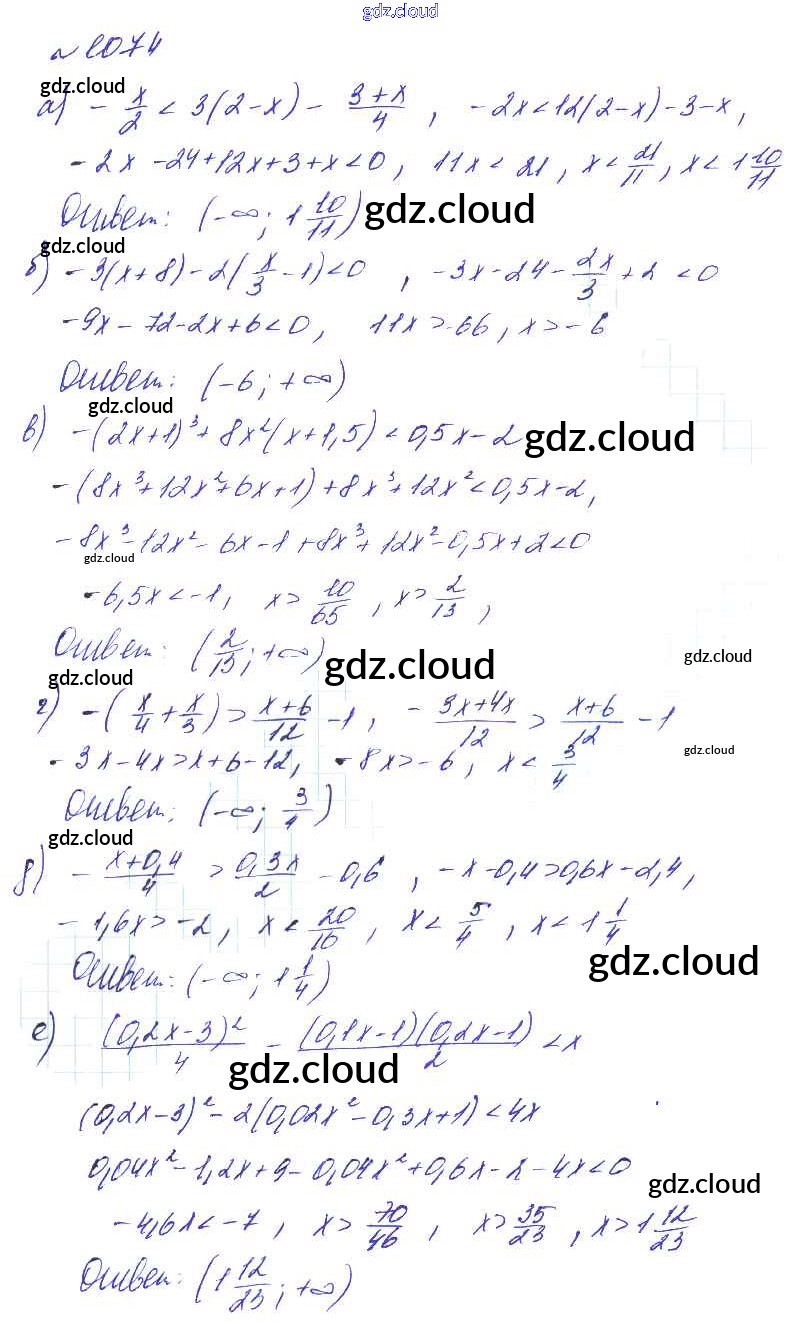 gdz.cloud
№ 1074
gdz.cloud
а) - x/2 < 3(2-x) - (3+x)/4 , -2x<12(2-x)-3-x,
-2x-24+12x+3+x<0, 11x<21, x<21/11, x<1 10/11
Ответ: (-∞; 1 10/11) gdz.cloud
gdz.cloud
б) -3(x+8)-2(x/3-1)<0 , -3x-24-2x/3+2<0
-9x-72-2x+6<0, 11x>-66, x>-6
Ответ: (-6; +∞)
gdz.cloud
в) -(2x+1)³+8x²(x+1,5)<0,5x-2 gdz.cloud
-(8x³+12x²+6x+1)+8x³+12x²<0,5x-2,
-8x³-12x²-6x-1+8x³+12x²-0,5x+2<0
gdz.cloud gdz.cloud
-6,5x<-1, x>10/65, x>2/13,
Ответ: (2/13; +∞) gdz.cloud gdz.cloud
gdz.cloud
г) -(x/4+x/3)>(x+6)/12-1, -(3x+4x)/12>(x+6)/12-1
-3x-4x>x+6-12, -8x>-6, x<3/4 gdz.cloud
Ответ: (-∞; 3/4)
gdz.cloud
д) -(x+0,4)/4>0,3x/2-0,6, -x-0,4>0,6x-2,4,
-1,6x>-2, x<20/16, x<5/4, x<1 1/4
Ответ: (-∞; 1 1/4) gdz.cloud
е) (0,2x-3)²/4-(0,1x-1)(0,2x-1)/2<x
gdz.cloud
(0,2x-3)²-2(0,02x²-0,3x+1)<4x
0,04x²-1,2x+9-0,04x²+0,6x-2-4x<0
gdz.cloud
-4,6x<-7, x>70/46, x>35/23, x>1 12/23
Ответ: (1 12/23; +∞)